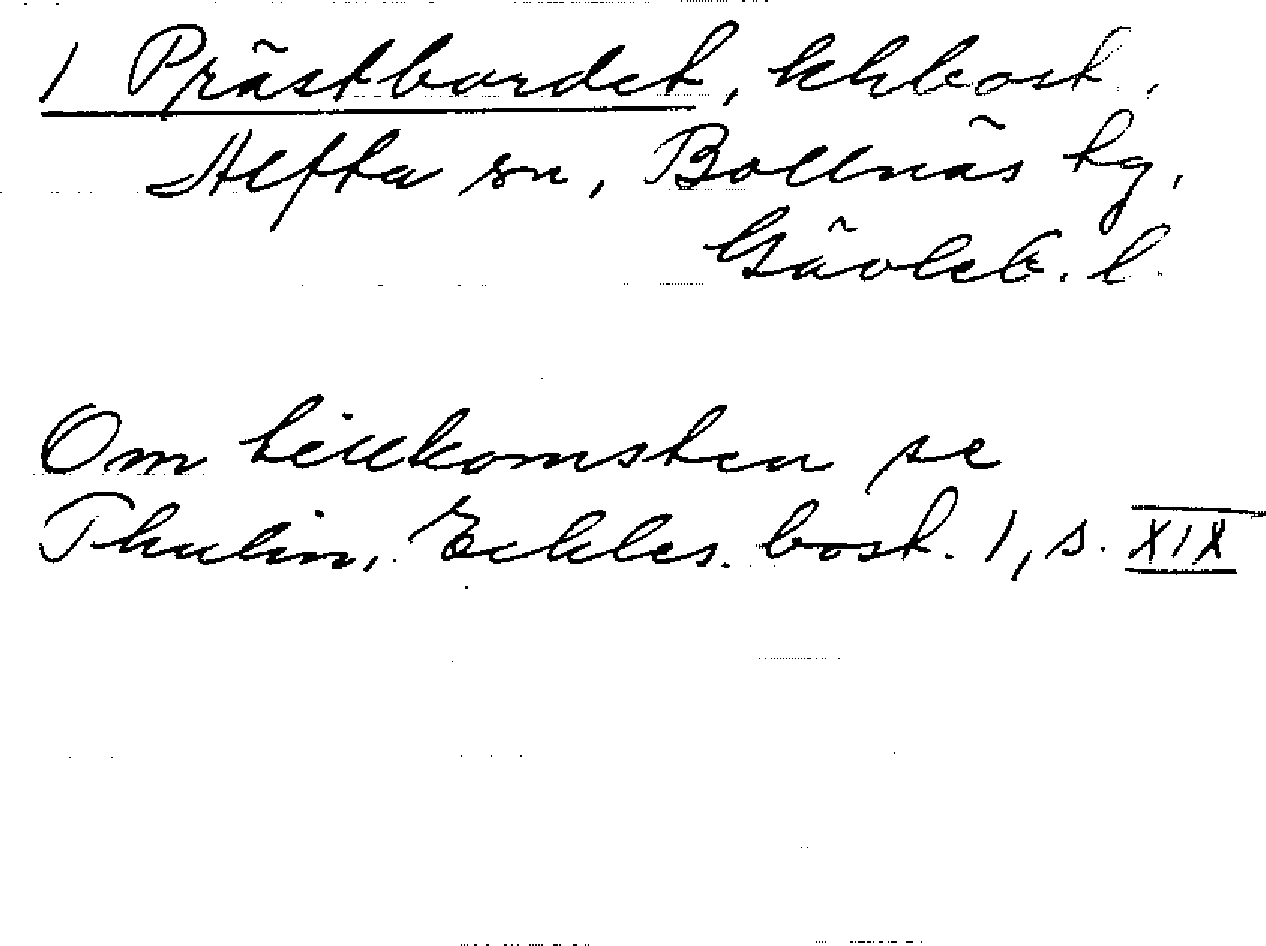 1 Prästbordet, khbost.
Alfta sn, Bollnäs tg,
Gävleb. l.
Om tillkomsten se
Thulin, Eckles. bost. 1, s. XIX